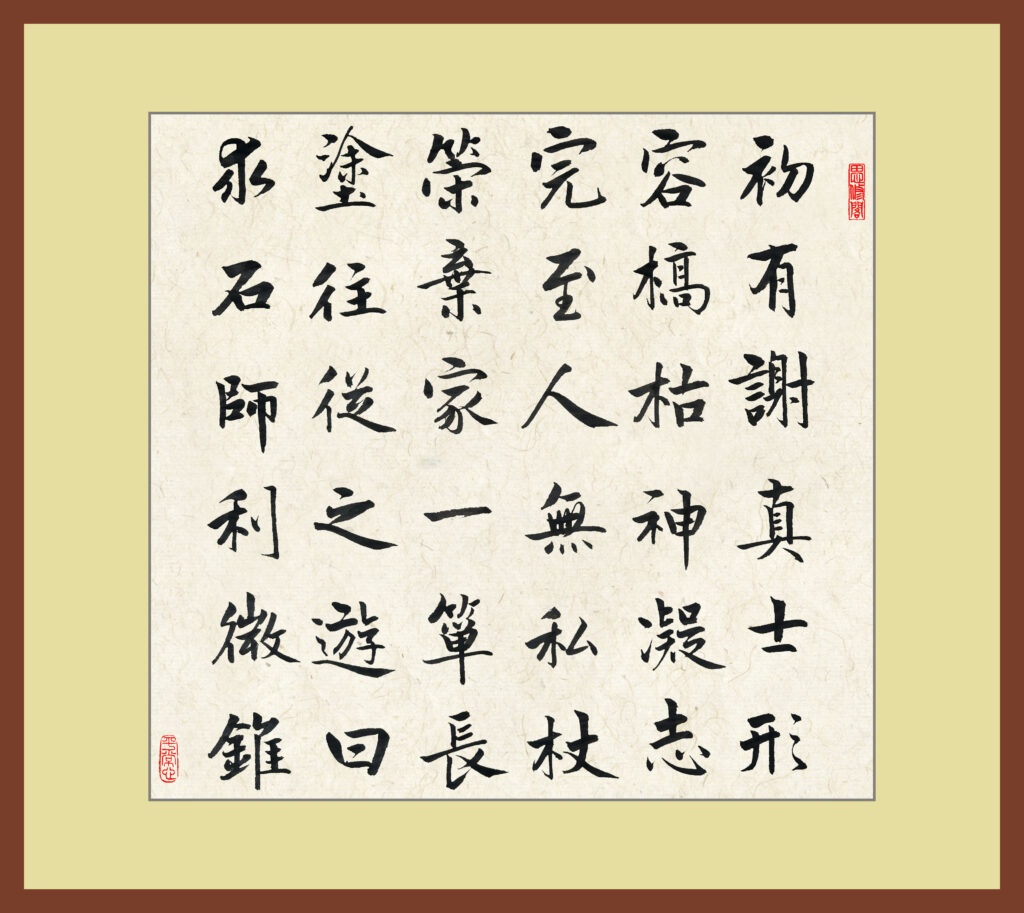 初有謝真士形
容槁枯神凝志
完至人無私杖
策棄家一簞長
塗往從之遊曰
求石師利微錐